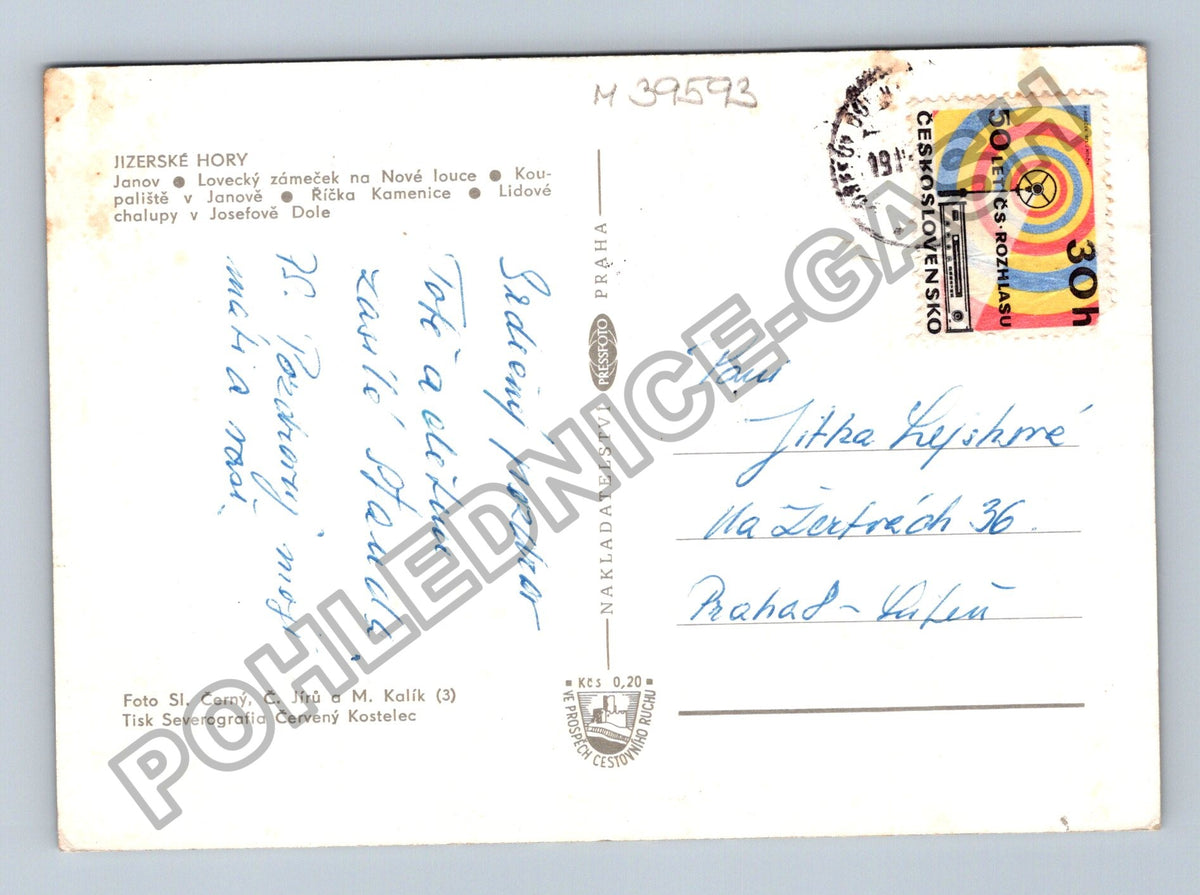 M 39593
JIZERSKÉ HORY
Janov ● Lovecký zámeček na Nové louce ● Kou-
paliště v Janově ● Říčka Kamenice ● Lidové
chalupy v Josefově Dole
Srdečný pozdrav
Totě a
zasílá Standa.
PS. Pozdravuj moji
mámu a
Foto Sl. Černý, Č. Jírů a M. Kalík (3)
Tisk Severografia Červený Kostelec
NAKLADATELSTVÍ PRESSFOTO PRAHA
Kčs 0,20
VE PROSPĚCH CESTOVNÍHO RUCHU
ČESKOSLOVENSKO
50 LET ČS. ROZHLASU
30 h
Paní
Jitka Lejsková
Na Žertvách 36.
Praha 8 - Libeň
POHLEDNICE-GASCH